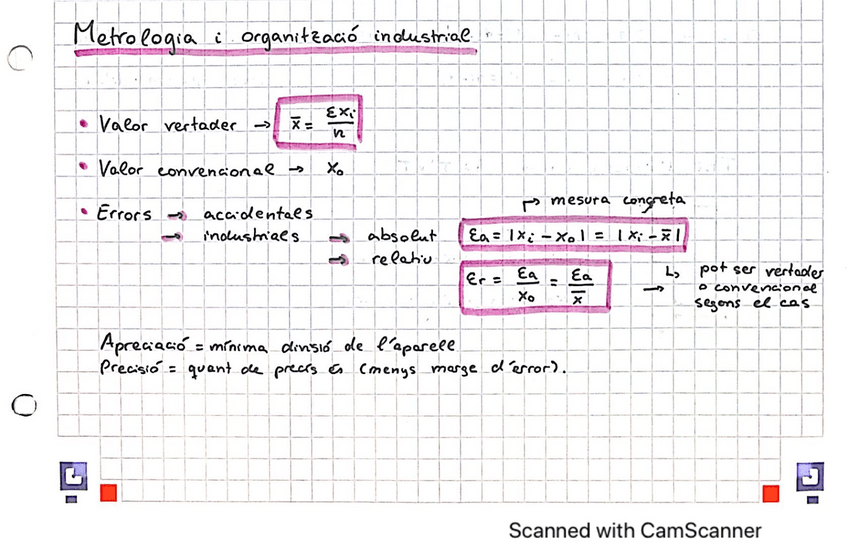 Metrologia i organització industrial
• Valor vertader → x̄ = Σxi / n
• Valor convencional → x₀
• Errors → accidentals
→ industrials → absolut
→ relatiu
↱ mesura concreta
Ea = |xi - x₀| = |xi - x̄|
Er = Ea / x₀ = Ea / x̄
↳ pot ser vertader
→ o convencional
segons el cas
Apreciació = mínima divisió de l'aparell
Precisió = quant de precís és (menys marge d'error).
Scanned with CamScanner